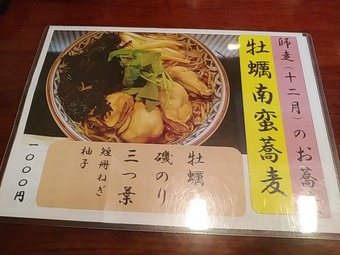 師走(十二月)のお蕎麦
牡蠣南蛮蕎麦
牡蠣
磯のり
三つ葉
短冊ねぎ
柚子
一〇〇〇円